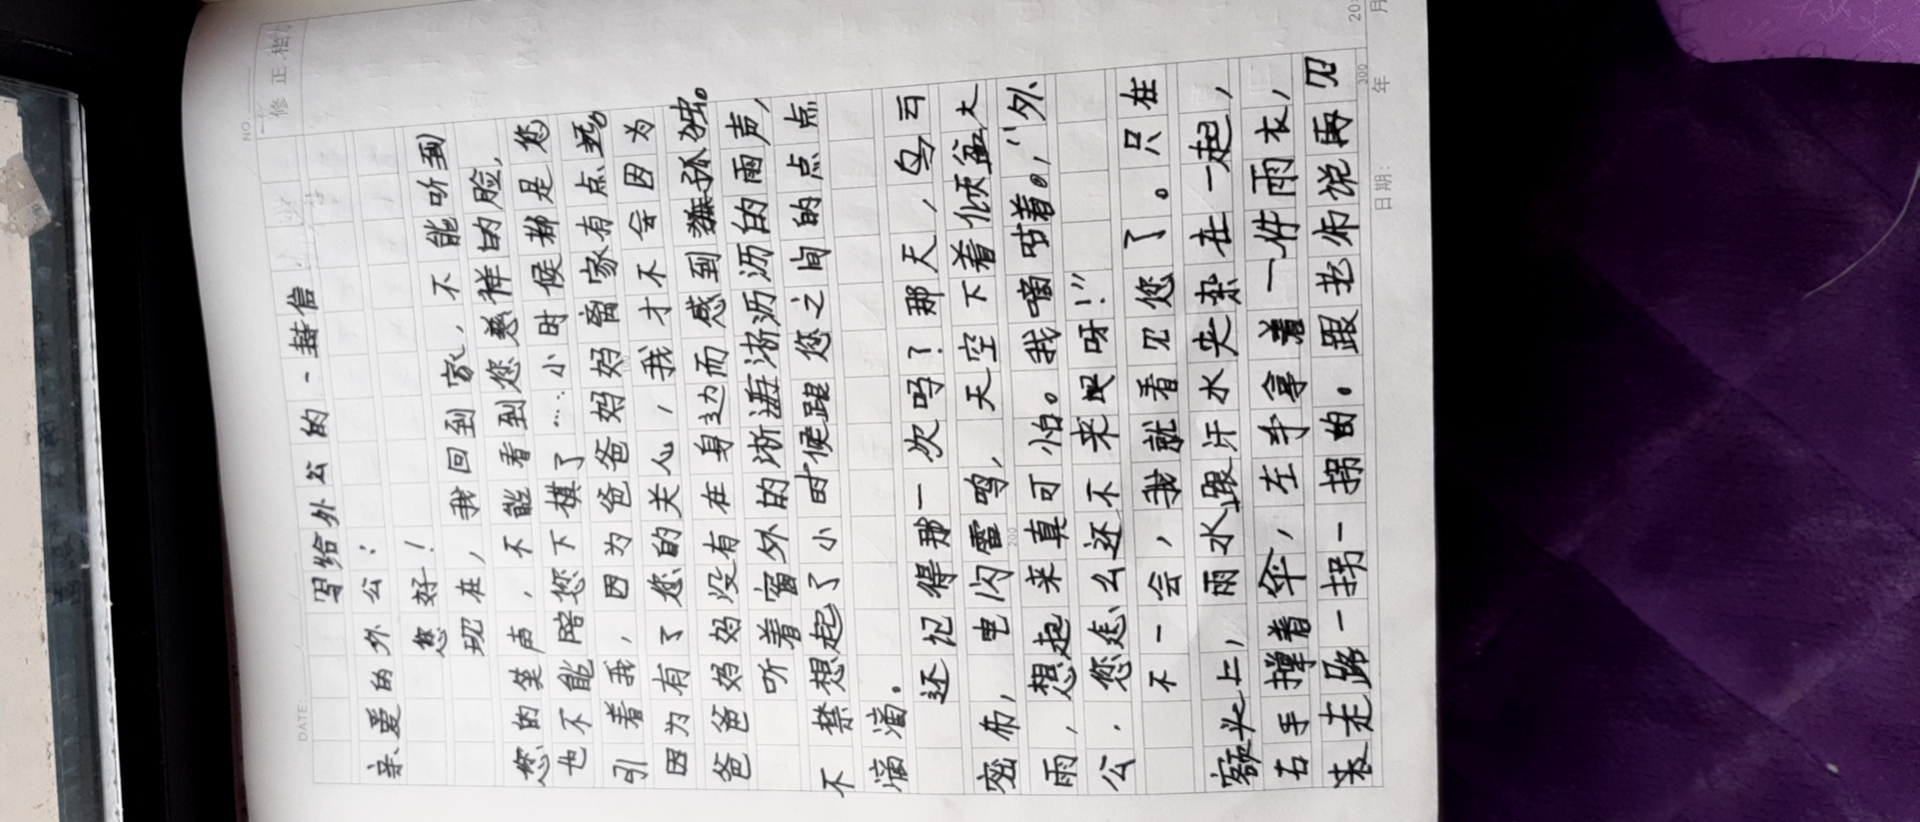 NO.
修正栏
DATE:
写给外公的一封信
亲爱的外公：
您好！
现在，我回到家，不能听到
您的笑声，不能看到您慈祥的脸，
也不能陪您下棋了……小时候都是您
引着我，因为爸爸妈妈离家有点远。
因为有了您的关心，我才不会因为
爸爸妈妈没有在身边而感到孤独。
听着窗外的淅淅沥沥的雨声，
不禁想起了小时候跟您之间的点点
滴滴。
还记得那一次吗？那天，乌云
密布，电闪雷鸣，天空下着倾盆大
雨，想起来真可怕。我嘀咕着，“外
公，您怎么还不来呀！”
不一会，我就看见您了。只在
额头上，雨水跟汗水夹杂在一起，
右手撑着伞，左手拿着一件雨衣，
走路一拐一拐的。跟老师说再见
200
300
日期：
年
月
20